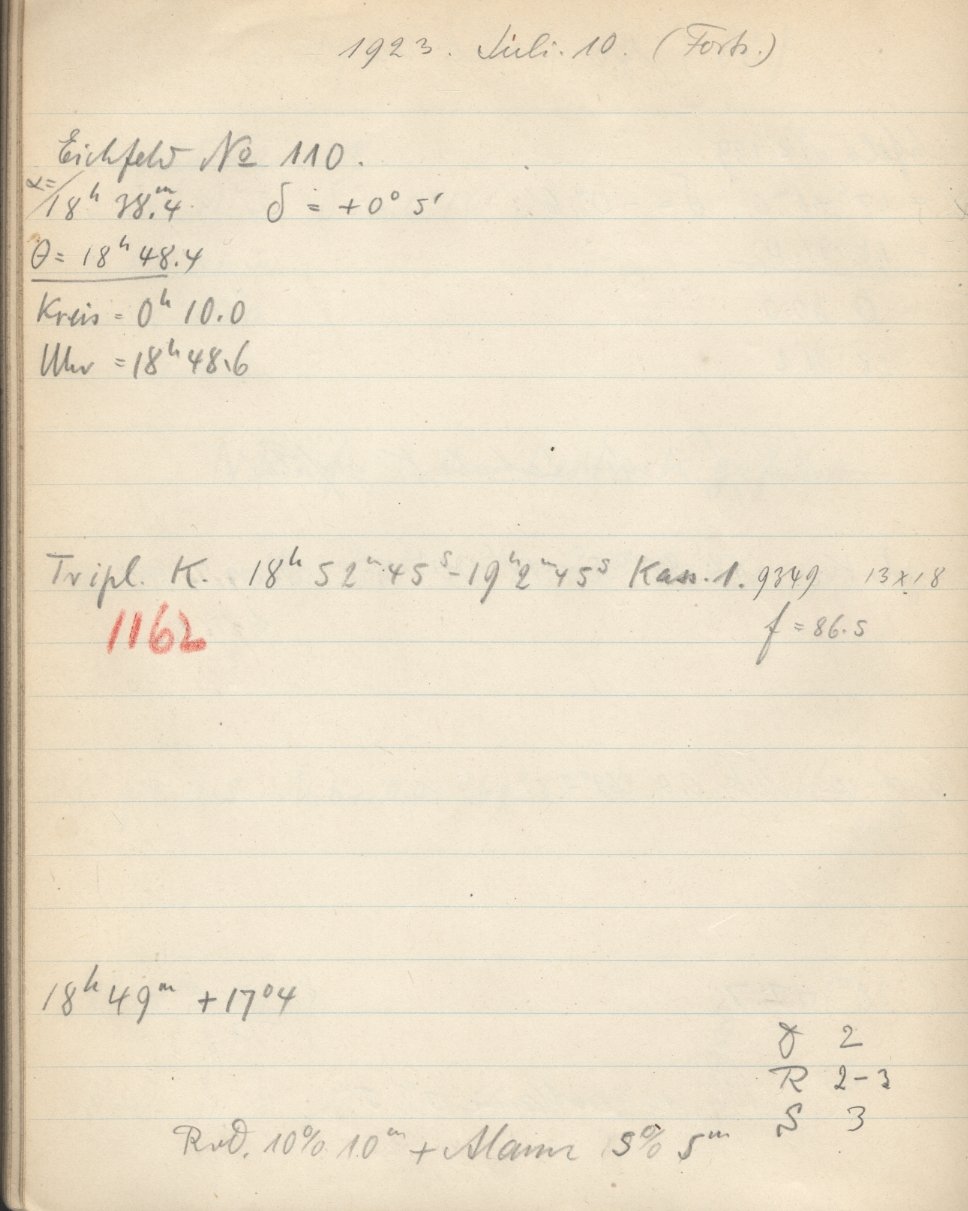 1923. Juli. 10. (Forts.)
Eichfeld No 110.
α=
18ʰ 38.ᵐ4 δ = +0° 5'
θ = 18ʰ 48.4
Kreis = 0ʰ 10.0
Uhr = 18ʰ 48.6
Tripl. K. 18ʰ 52ᵐ 45ˢ - 19ʰ 2ᵐ 45ˢ Kass. 1. 9349 13x18
1162
f = 86.5
18ʰ 49ᵐ +17°4
D 2
R 2-3
S 3
Rod. 10% 10ᵐ + Alaun 5% 5ᵐ